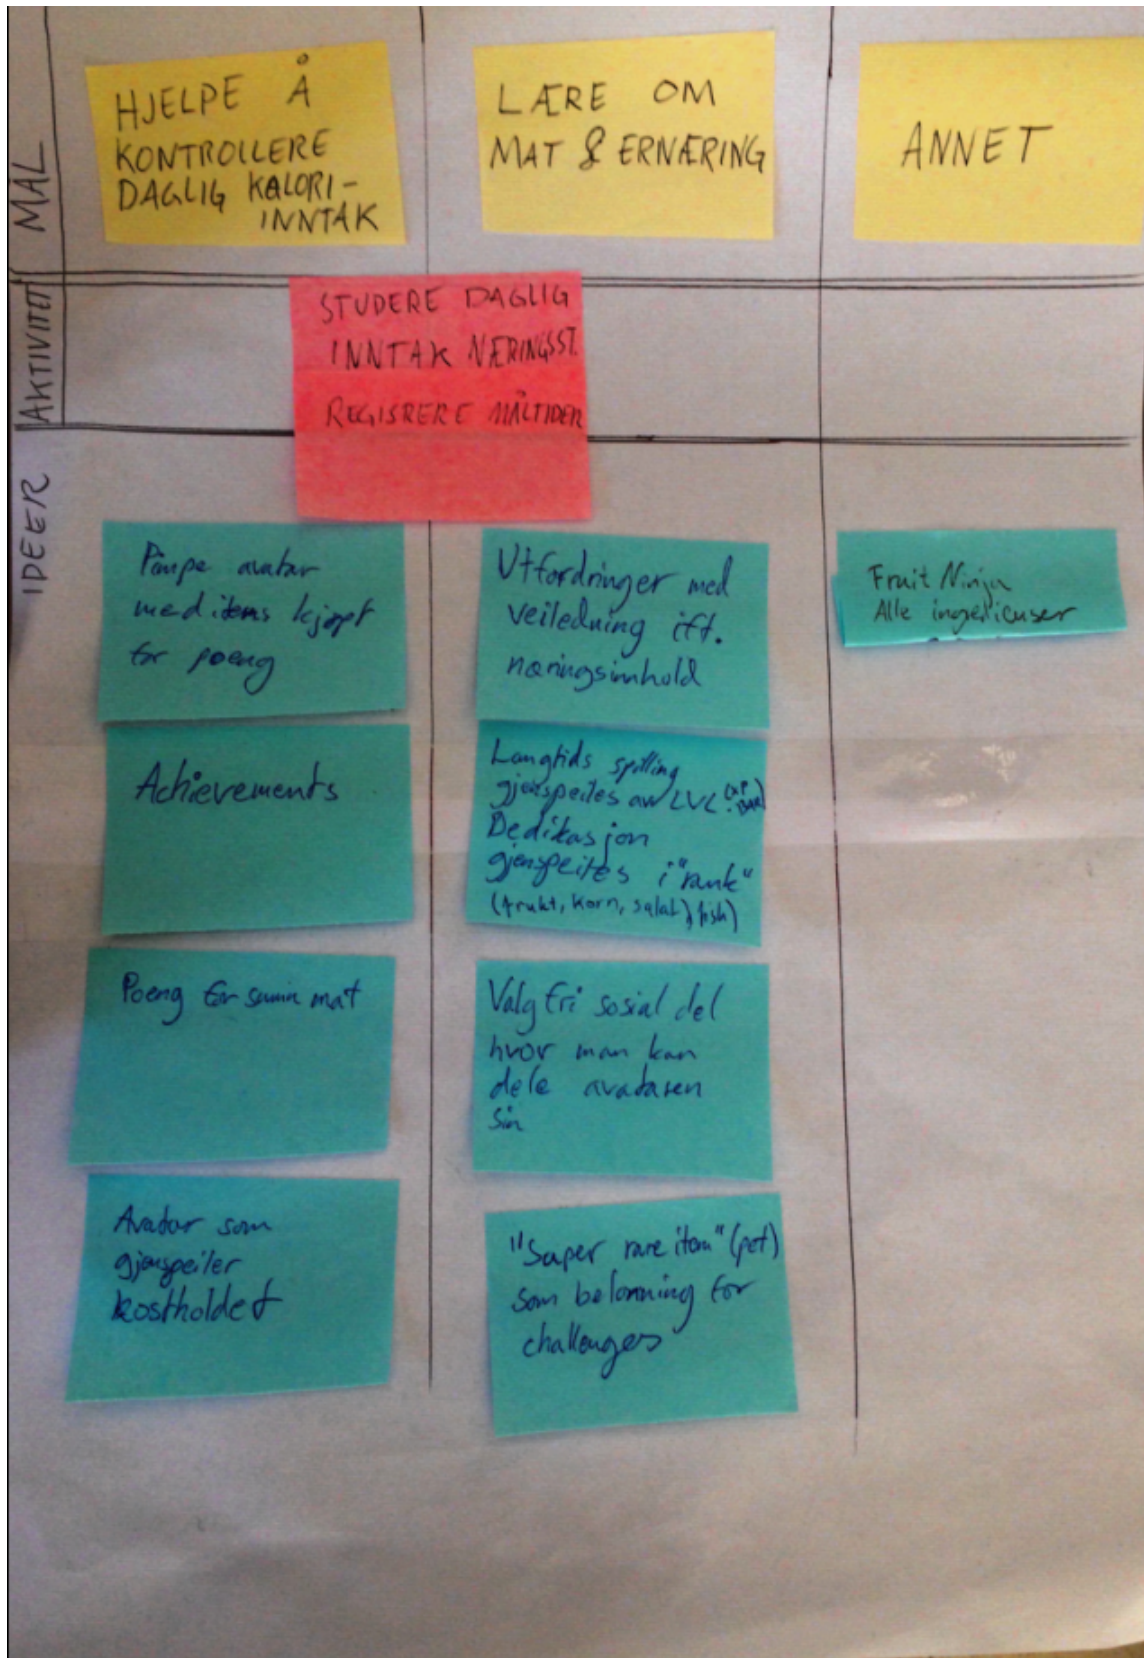 MÅL
HJELPE Å
KONTROLLERE
DAGLIG KALORI-
INNTAK
LÆRE OM
MAT & ERNÆRING
ANNET
AKTIVITET
STUDERE DAGLIG
INNTAK NÆRINGSST.
REGISRERE MÅLTIDER
IDEER
Pimpe avatar
med items kjøpt
for poeng
Achievements
Poeng for sunn mat
Avatar som
gjenspeiler
kostholdet
Utfordringer med
veiledning ift.
næringsinnhold
Langtids spilling
gjenspeiles av LVL (XP BAR)
Dedikasjon
gjenspeiles i "rank"
(frukt, korn, salat, fisk)
Valgfri sosial del
hvor man kan
dele avataren
sin
"Super rare item" (pet)
som belønning for
challenges
Fruit Ninja
Alle ingredienser